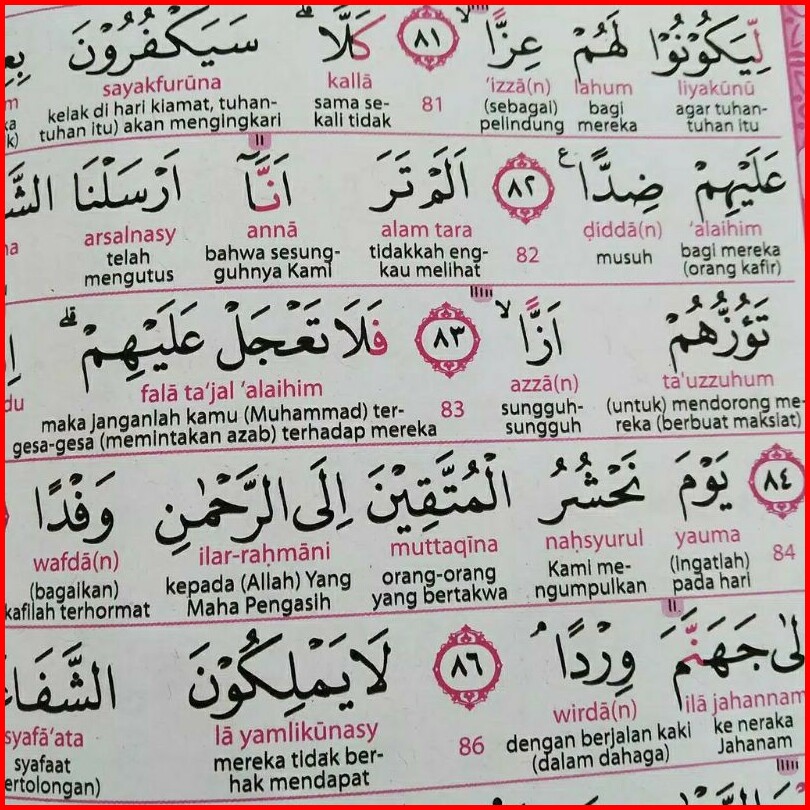 لِّيَكُوْنُوْا لَهُمْ عِزًّاۙ ٨١ كَلَّاۗ سَيَكْفُرُوْنَ
liyakūnū lahum ‘izzā(n) 81 kallā sayakfurūna
agar tuhan-tuhan itu bagi mereka (sebagai) pelindung sama se-kali tidak kelak di hari kiamat, tuhan-tuhan itu) akan mengingkari
عَلَيْهِمْ ضِدًّا ࣖ ٨٢ اَلَمْ تَرَ اَنَّآ اَرْسَلْنَا
‘alaihim ḍiddā(n) 82 alam tara annā arsalnasy
bagi mereka (orang kafir) musuh tidakkah eng-kau melihat bahwa sesung-guhnya Kami telah mengutus
تَؤُزُّهُمْ اَزًّاۙ ٨٣ فَلَا تَعْجَلْ عَلَيْهِمْۗ
ta'uzzuhum azzā(n) 83 falā ta‘jal ‘alaihim
(untuk) mendorong me-reka (berbuat maksiat) sungguh-sungguh maka janganlah kamu (Muhammad) ter-gesa-gesa (memintakan azab) terhadap mereka
٨٤ يَوْمَ نَحْشُرُ الْمُتَّقِيْنَ اِلَى الرَّحْمٰنِ وَفْدًا
84 yauma naḥsyurul muttaqīna ilar-raḥmāni wafdā(n)
(Ingatlah) pada hari Kami me-ngumpulkan orang-orang yang bertakwa kepada (Allah) Yang Maha Pengasih (bagaikan) kafilah terhormat
جَهَنَّمَ وِرْدًاۘ ٨٦ لَا يَمْلِكُوْنَ
ilā jahannam wirdā(n) 86 lā yamlikūnasy syafā‘ata
ke neraka Jahanam dengan berjalan kaki (dalam dahaga) mereka tidak ber-hak mendapat syafaat